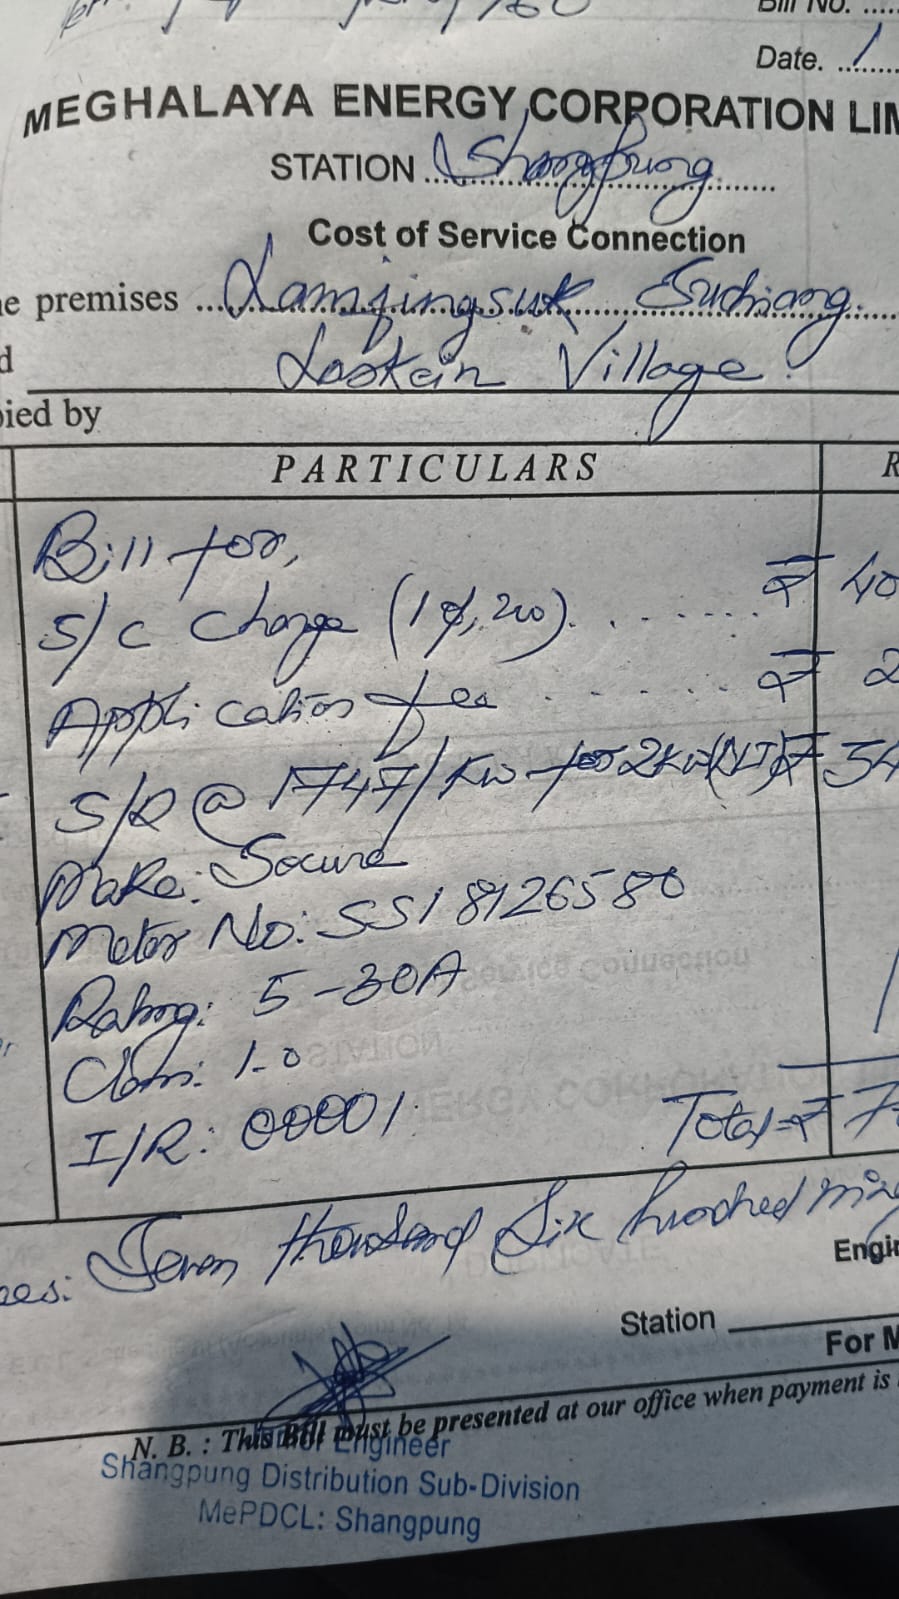 Bill No. .....
Date. ..........
MEGHALAYA ENERGY CORPORATION LIM
STATION ... Shangpung ..........
Cost of Service Connection
e premises ... Lamjingsuk Suchiang ......
d Laskein Village.
pied by
PARTICULARS R
Bill for,
S/C Charge (1ɸ, 2w). . . . . . . . ₹ 40
Application fee . . . . . . . ₹ 2
S/D @ 1747/Kw for 2Kw (NLT) ₹ 34
Make: Secure
Meter No: SS18126580
Rating: 5-30A
Class: 1.0
I/R: 00001.
Total = ₹ 7
ees: Seven thousand Six hundred
Engi
Station
For M
N. B. : This Bill must be presented at our office when payment is
Engineer
Shangpung Distribution Sub-Division
MePDCL: Shangpung